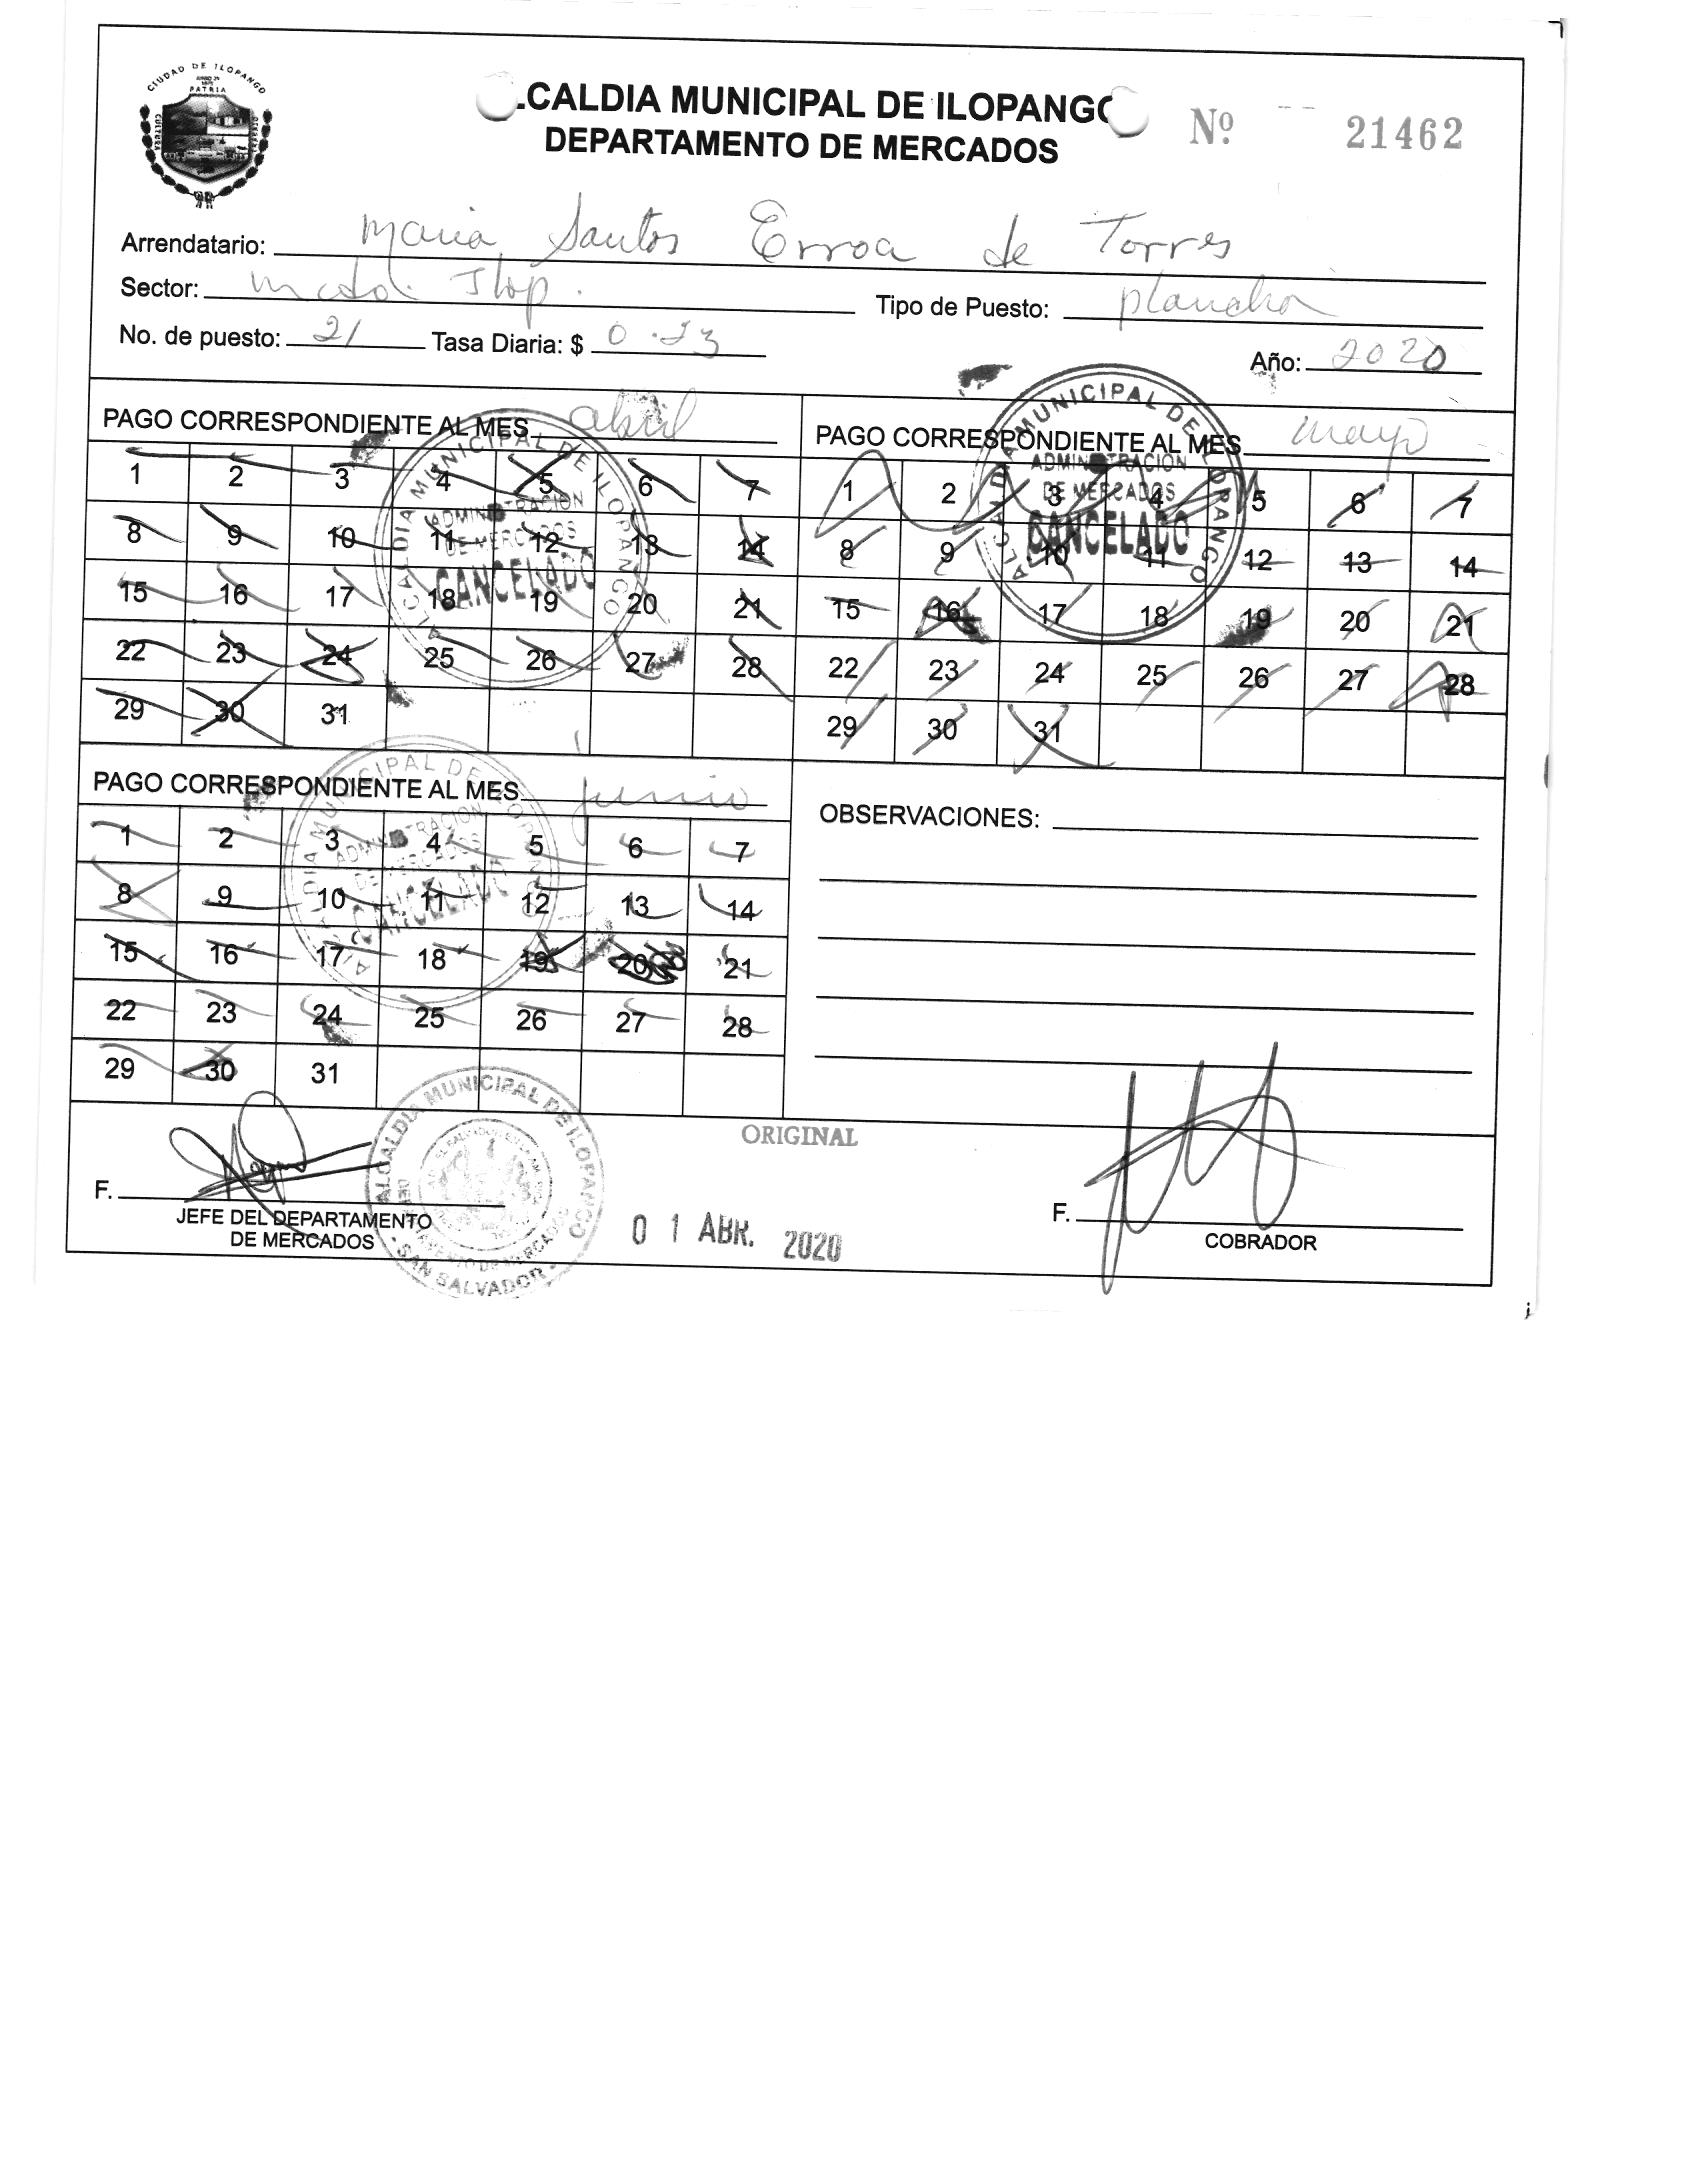 CIUDAD DE ILOPANGO
PATRIA
CULTURA
.CALDIA MUNICIPAL DE ILOPANGO
DEPARTAMENTO DE MERCADOS
Nº 21462
Arrendatario: Maria Santos Erroa de Torres
Sector: Mcdo. Ilop.
Tipo de Puesto: plancha
No. de puesto: 21 Tasa Diaria: $ 0.23
Año: 2020
PAGO CORRESPONDIENTE AL MES abril
1 2 3 4 5 6 7
8 9 10 11 12 13 14
15 16 17 18 19 20 21
22 23 24 25 26 27 28
29 30 31
ALCALDIA MUNICIPAL DE ILOPANGO
ADMINISTRACION
DE MERCADOS
CANCELADO
PAGO CORRESPONDIENTE AL MES mayo
1 2 3 4 5 6 7
8 9 10 11 12 13 14
15 16 17 18 19 20 21
22 23 24 25 26 27 28
29 30 31
ALCALDIA MUNICIPAL DE ILOPANGO
ADMINISTRACION
DE MERCADOS
CANCELADO
PAGO CORRESPONDIENTE AL MES junio
1 2 3 4 5 6 7
8 9 10 11 12 13 14
15 16 17 18 19 20 21
22 23 24 25 26 27 28
29 30 31
ALCALDIA MUNICIPAL DE ILOPANGO
ADMINISTRACION
DE MERCADOS
CANCELADO
OBSERVACIONES:
ORIGINAL
F.
JEFE DEL DEPARTAMENTO
DE MERCADOS
ALCALDIA MUNICIPAL DE ILOPANGO
DEPARTAMENTO DE MERCADOS
SAN SALVADOR
01 ABR. 2020
F.
COBRADOR